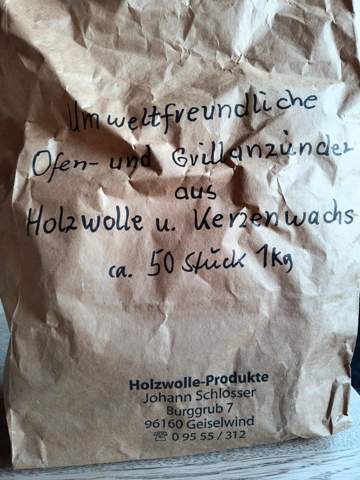 Umweltfreundliche
Ofen- und Grillanzünder
aus
Holzwolle u. Kerzenwachs
ca. 50 Stück 1kg
Holzwolle-Produkte
Johann Schlosser
Burggrub 7
96160 Geiselwind
☏ 0 95 55 / 312